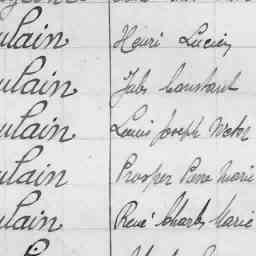 ulain Henri Lucien
ulain Jules Constant
ulain Louis Joseph Victor
ulain Prosper Pierre Marie
ulain René Charles Marie